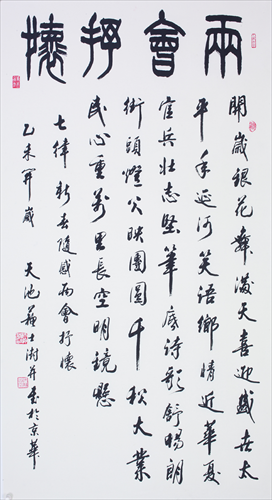 兩會抒懷
開歲銀花舞漫天喜迎盛世太
平年延河笑語鄉情近華夏
官兵壯志堅筆底詩形舒暢朗
街頭燈火映團圓千秋大業
民心重萬里長空明鏡懸
七律新春隨感兩會抒懷
乙未開歲 天池蘇士澍并書於京華